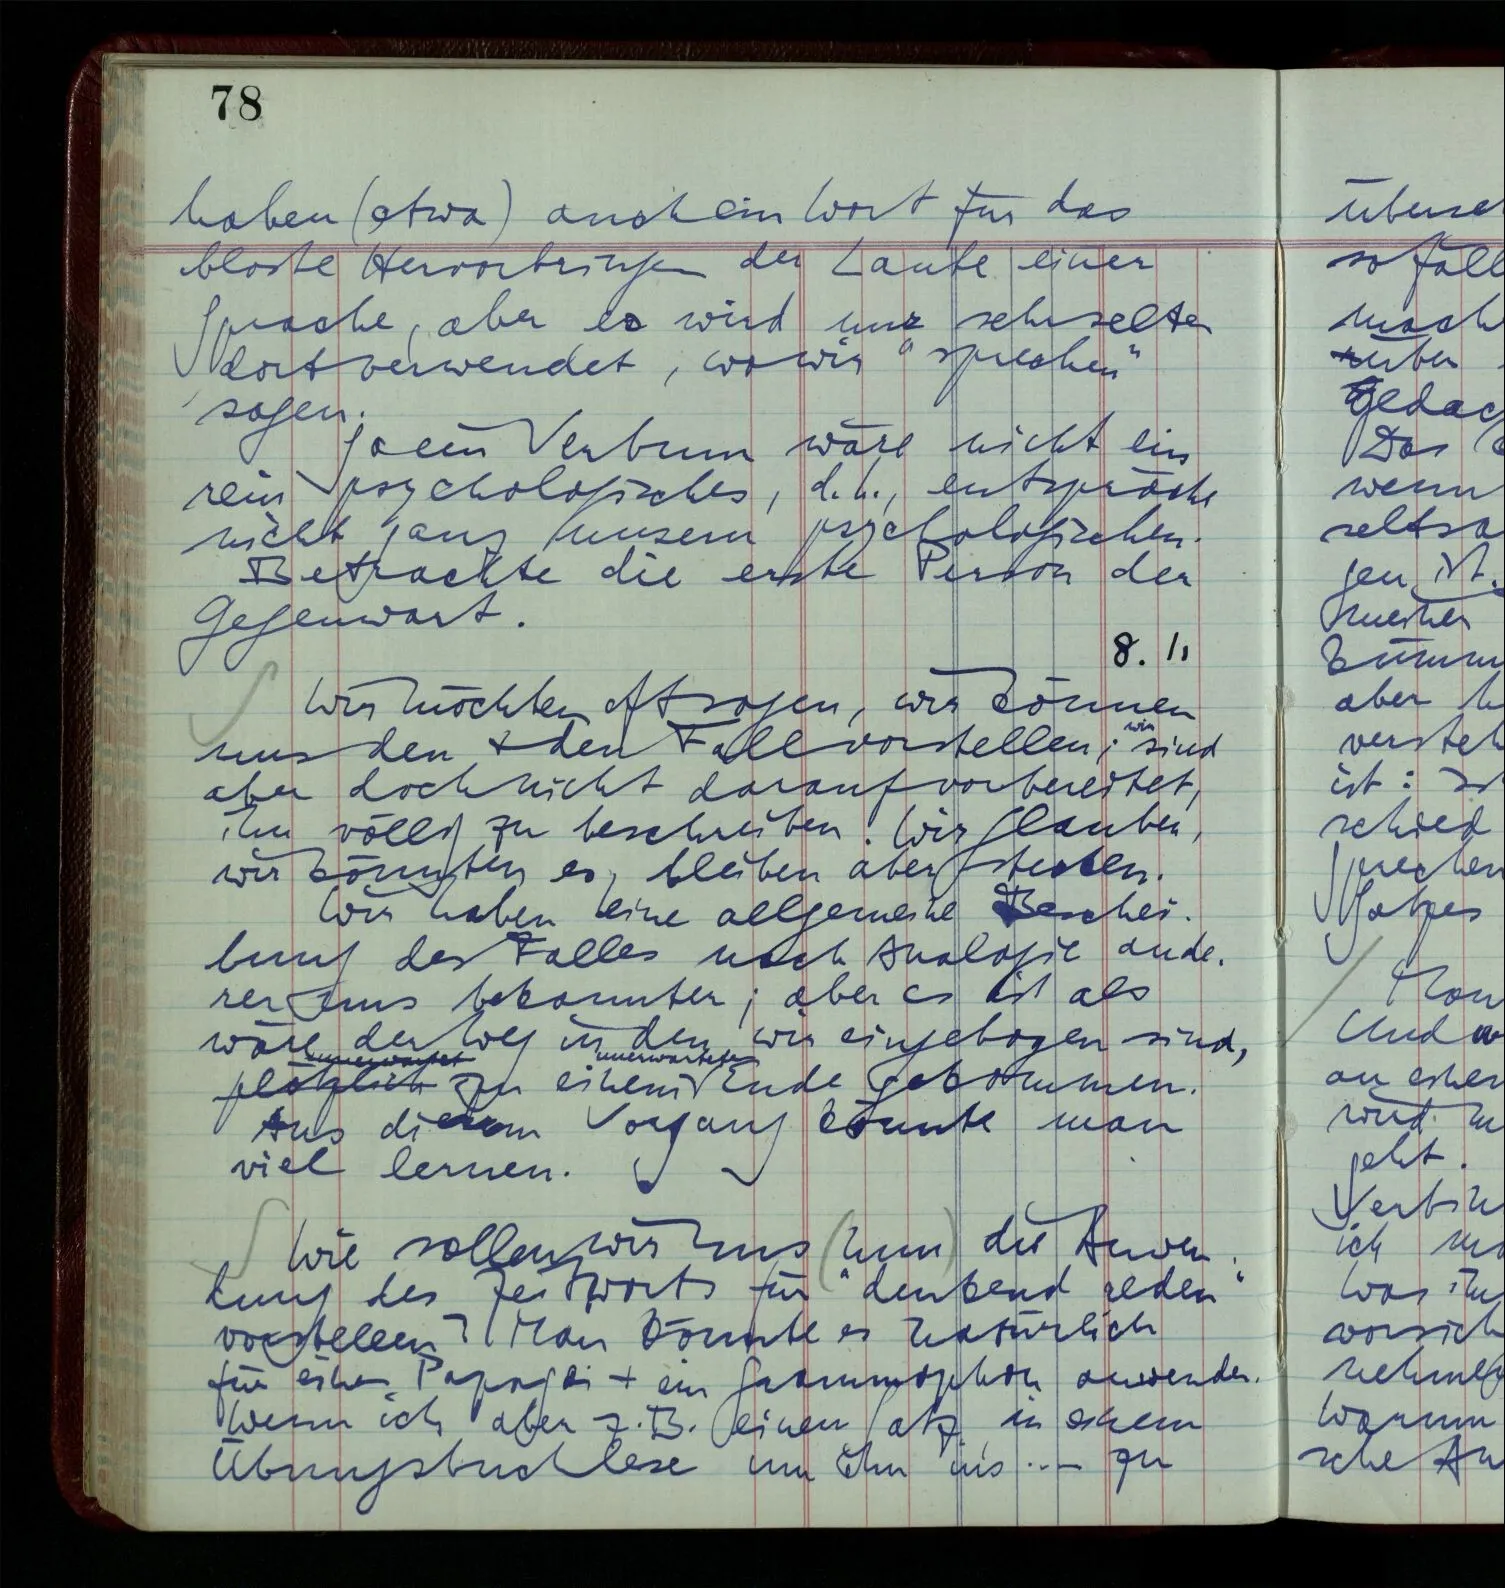 78
haben (etwa) auch ein Wort für das
bloße Hervorbringen der Laute einer
Sprache, aber es wird nur sehr selten
dort verwendet, wo wir "sprechen"
sagen.
Ja ein Verbum wäre nicht ein
rein psychologisches, d.h., entspräche
nicht ganz unsern psychologischen.
Betrachte die erste Person der
Gegenwart.
8. 1.
Wir möchten oft sagen, wir können
uns den + den Fall vorstellen; wir sind
aber doch nicht darauf vorbereitet,
ihn völlig zu beschreiben. Wir glauben,
wir könnten es, bleiben aber stecken.
Wir haben eine allgemeine Beschei-
bung des Falles nach Analogie ande-
rer uns bekannter; aber es ist als
wäre der Weg in den wir eingebogen sind,
unerwartet unerwarteten
plötzlich zu einem Ende gekommen.
Aus diesem Vorgang könnte man
viel lernen.
Wie sollen wir uns (nun) die Anwen-
dung des Zeitworts für "denkend reden"
vorstellen? Man könnte es natürlich
für einen Papagei + ein Grammophon anwenden.
Wenn ich aber z.B. einen Satz in einem
Übungsbuch lese um ihn ins ... zu
über
Das
wenn
seltsa
gen ist.
meines
aber
versteh
ist:
schied
sprechen
Satzes
Man
Und w
an einen
wird
geht.
ich
Was
vorsich
nehme
Warum
sche An